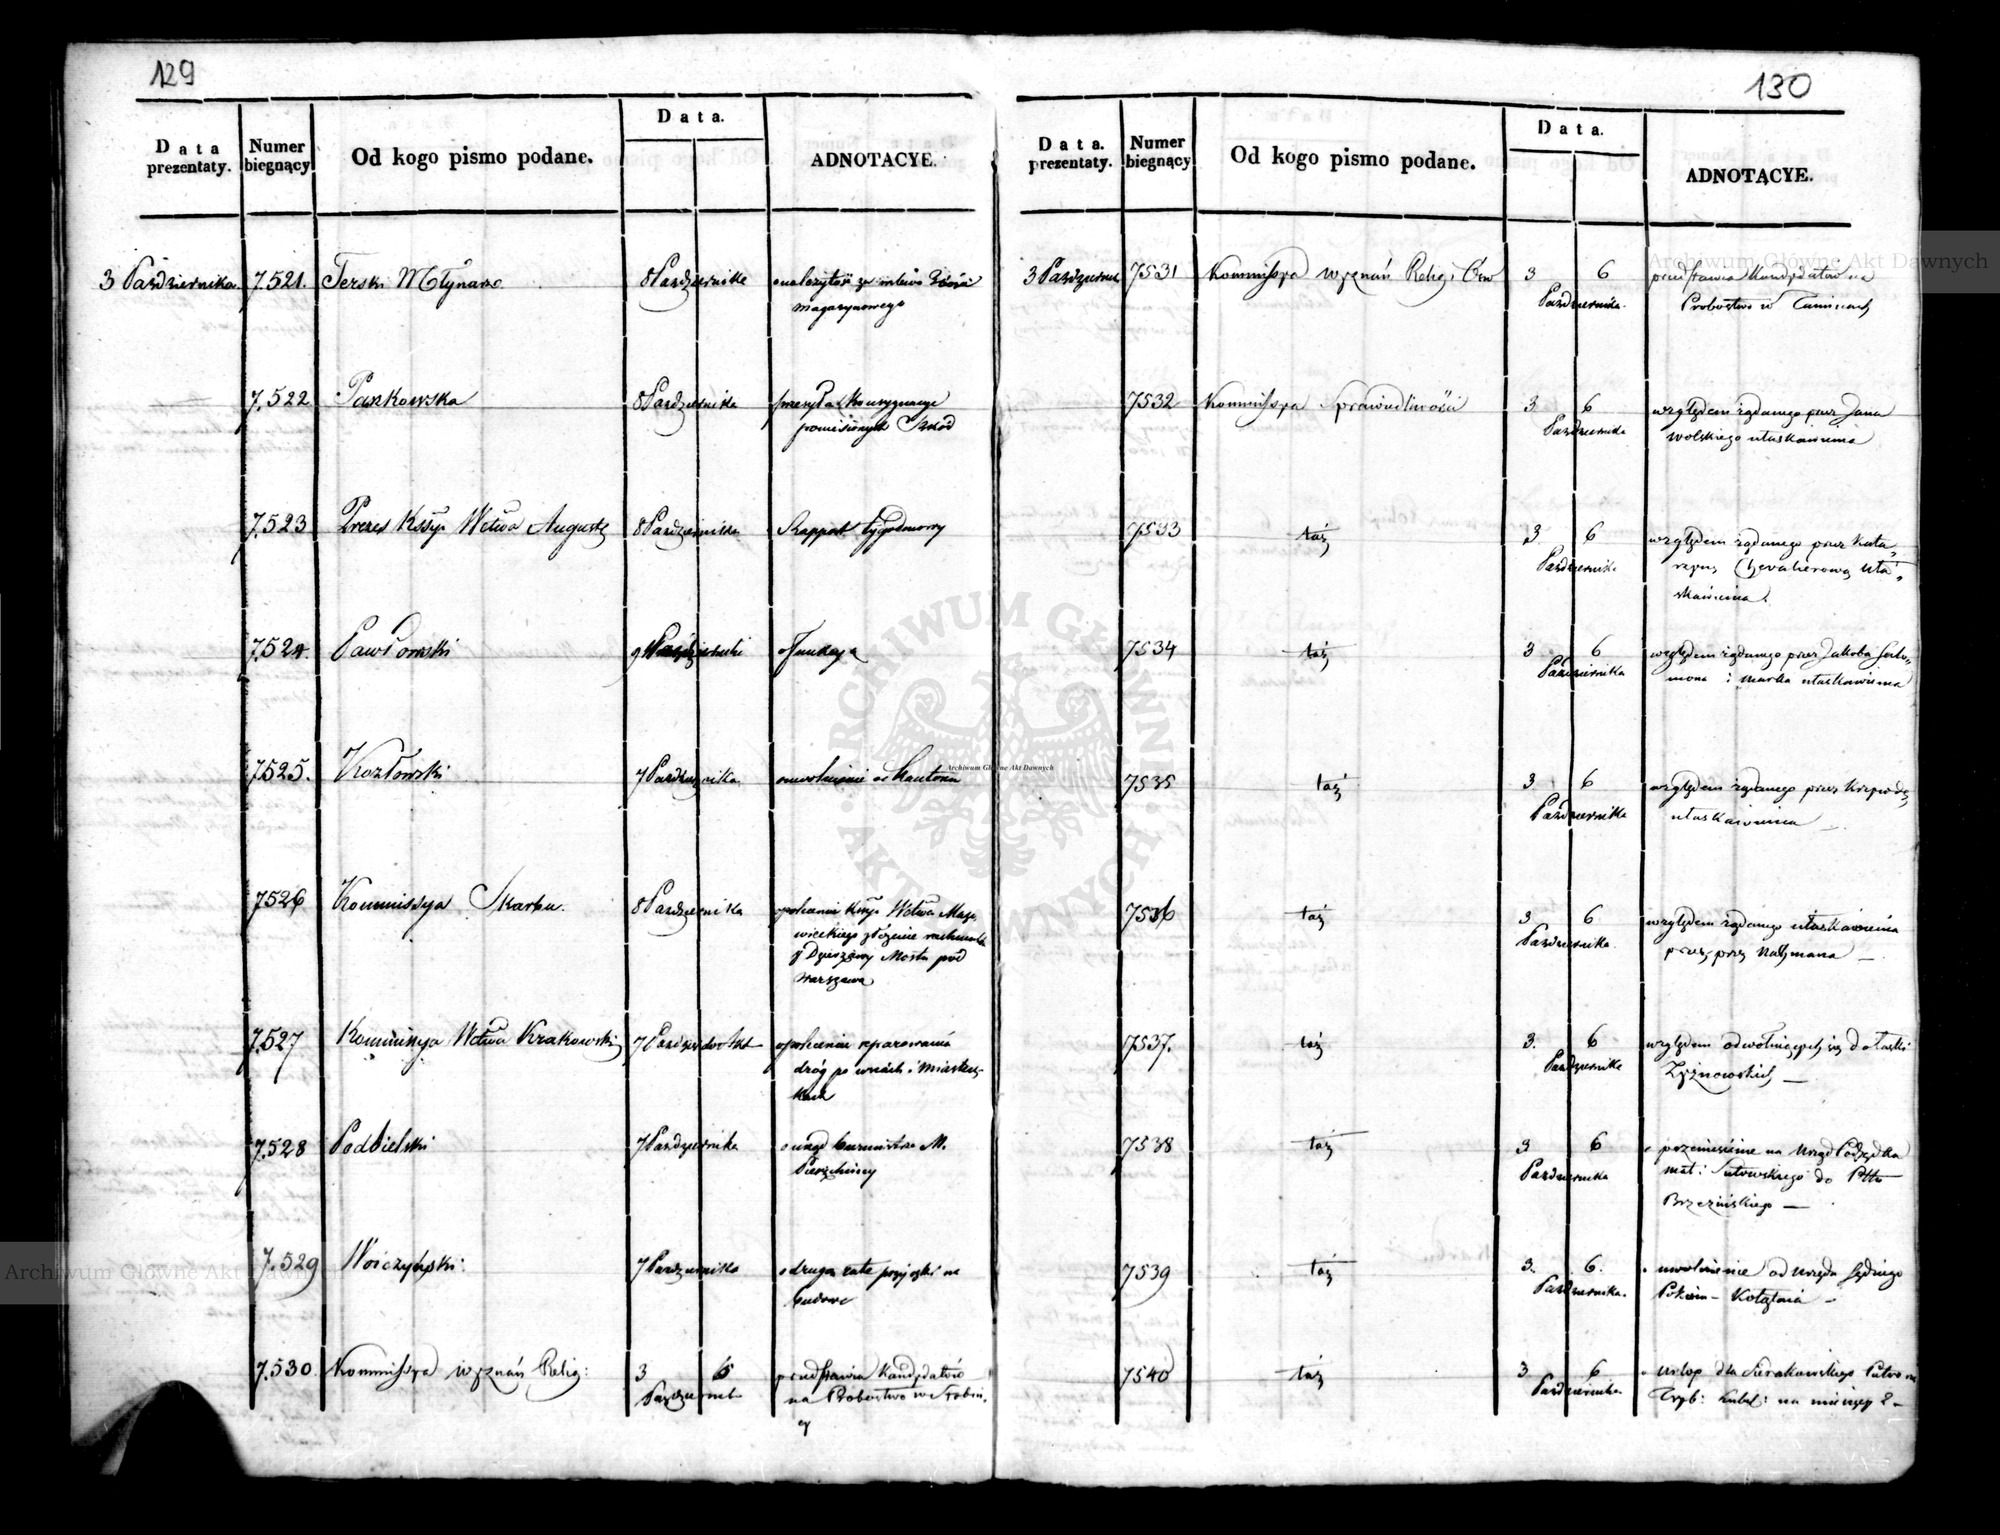 129
Data prezentaty.
Numer biegnący
Od kogo pismo podane.
Data.
ADNOTACYE.
3 Października 7.521. Terski Młynarz 8 Październike należytość za mlewo Zboża
magazynowego
7.522 Paszkowska 8 Października
7.523 Prezes Kssyi Wctwa Augusts 8 Października Rapport tygodniowy
7.524. Pawłowski 9
7.525. Kozłowski 7 Października uwolnienie od Kantonu
7.526 Kommissya Skarbu. 8 Października
wieckiego złożenie
Dzierżawy Mostu pod
Warszawa
7.527 Kommissya Wctwa Krakowski 7 reparowania
dróg po wsiach i Miastecz-
kach
7.528 Podbielski 7 Października o urząd burmistrza M.
7.529 Woiczyński: 7 Października o druga rate pożyczki na
budowe
7.530 Kommissya wyznań Relig: 3 6
Październik
przedstawia Kandydatów
na Probostwo w
130
Data. prezentaty.
Numer biegnący
Od kogo pismo podane.
Data.
ADNOTACYE.
3 Październik 7531 Kommissya wyznań Relig i Ośw 3 6
Października.
przedstawia Kandydatów na
Probostwo w
7532 Kommissya Sprawiedliwości 3. 6
Października
względem żądanego przez Jana
Wolskiego ułaskawienia
7533 taż 3. 6
Października
względem żądanego przez Kata„
rzynę Chevalierową uła„
skawienia.
7534 taż 3 6
Października
względem żądanego przez Jakoba Salo„
mona i Marka ułaskawienia
7535 taż 3 6
Października
względem żądanego przez
ułaskawienia —
7536 taż 3 6
Października.
względem żądanego ułaskawienia
7537. taż 3. 6
Października
względem odwołujących się do łaski
7538 taż 3 6
Października
o przeniesienie na Urząd Podsędka
do Pttu
Brzezińskiego —
7539 taż 3. 6.
Października.
o uwolnienie od urzędu Sędziego
Pokoiu — —
7540 taż 3 6
Października
o urlop dla Sierakowskiego
Tryb: Lubel: na miesięcy 2 —
Archiwum Główne Akt Dawnych
Archiwum Główne Akt Dawnych
Archiwum Główne Akt Dawnych
ARCHIWUM GŁÓWNE
AKT DAWNYCH